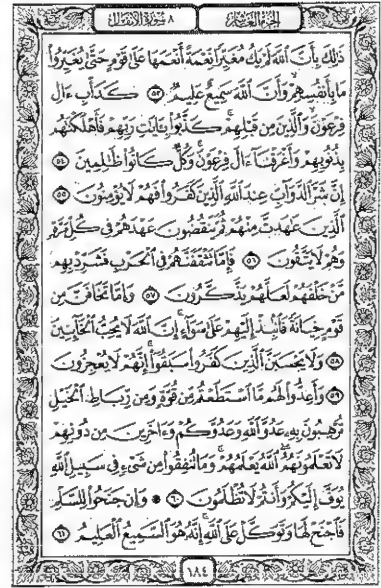 الجزء العاشر ٨ سورة الأنفال
ذَٰلِكَ بِأَنَّ ٱللَّهَ لَمْ يَكُ مُغَيِّرًا نِّعْمَةً أَنْعَمَهَا عَلَىٰ قَوْمٍ حَتَّىٰ يُغَيِّرُوا۟
مَا بِأَنفُسِهِمْ وَأَنَّ ٱللَّهَ سَمِيعٌ عَلِيمٌ ٥٣ كَدَأْبِ ءَالِ
فِرْعَوْنَ وَٱلَّذِينَ مِن قَبْلِهِمْ كَذَّبُوا۟ بِـَٔايَـٰتِ رَبِّهِمْ فَأَهْلَكْنَـٰهُم
بِذُنُوبِهِمْ وَأَغْرَقْنَآ ءَالَ فِرْعَوْنَ وَكُلٌّ كَانُوا۟ ظَـٰلِمِينَ ٥٤
إِنَّ شَرَّ ٱلدَّوَآبِّ عِندَ ٱللَّهِ ٱلَّذِينَ كَفَرُوا۟ فَهُمْ لَا يُؤْمِنُونَ ٥٥
ٱلَّذِينَ عَـٰهَدتَّ مِنْهُمْ ثُمَّ يَنقُضُونَ عَهْدَهُمْ فِى كُلِّ مَرَّةٍ
وَهُمْ لَا يَتَّقُونَ ٥٦ فَإِمَّا تَثْقَفَنَّهُمْ فِى ٱلْحَرْبِ فَشَرِّدْ بِهِم
مَّنْ خَلْفَهُمْ لَعَلَّهُمْ يَذَّكَّرُونَ ٥٧ وَإِمَّا تَخَافَنَّ مِن
قَوْمٍ خِيَانَةً فَٱنۢبِذْ إِلَيْهِمْ عَلَىٰ سَوَآءٍ إِنَّ ٱللَّهَ لَا يُحِبُّ ٱلْخَآئِنِينَ
٥٨ وَلَا يَحْسَبَنَّ ٱلَّذِينَ كَفَرُوا۟ سَبَقُوٓا۟ إِنَّهُمْ لَا يُعْجِزُونَ
٥٩ وَأَعِدُّوا۟ لَهُم مَّا ٱسْتَطَعْتُم مِّن قُوَّةٍ وَمِن رِّبَاطِ ٱلْخَيْلِ
تُرْهِبُونَ بِهِۦ عَدُوَّ ٱللَّهِ وَعَدُوَّكُمْ وَءَاخَرِينَ مِن دُونِهِمْ
لَا تَعْلَمُونَهُمُ ٱللَّهُ يَعْلَمُهُمْ وَمَا تُنفِقُوا۟ مِن شَىْءٍ فِى سَبِيلِ ٱللَّهِ
يُوَفَّ إِلَيْكُمْ وَأَنتُمْ لَا تُظْلَمُونَ ٦٠ ۞ وَإِن جَنَحُوا۟ لِلسَّلْمِ
فَٱجْنَحْ لَهَا وَتَوَكَّلْ عَلَى ٱللَّهِ إِنَّهُۥ هُوَ ٱلسَّمِيعُ ٱلْعَلِيمُ ٦١
١٨٤